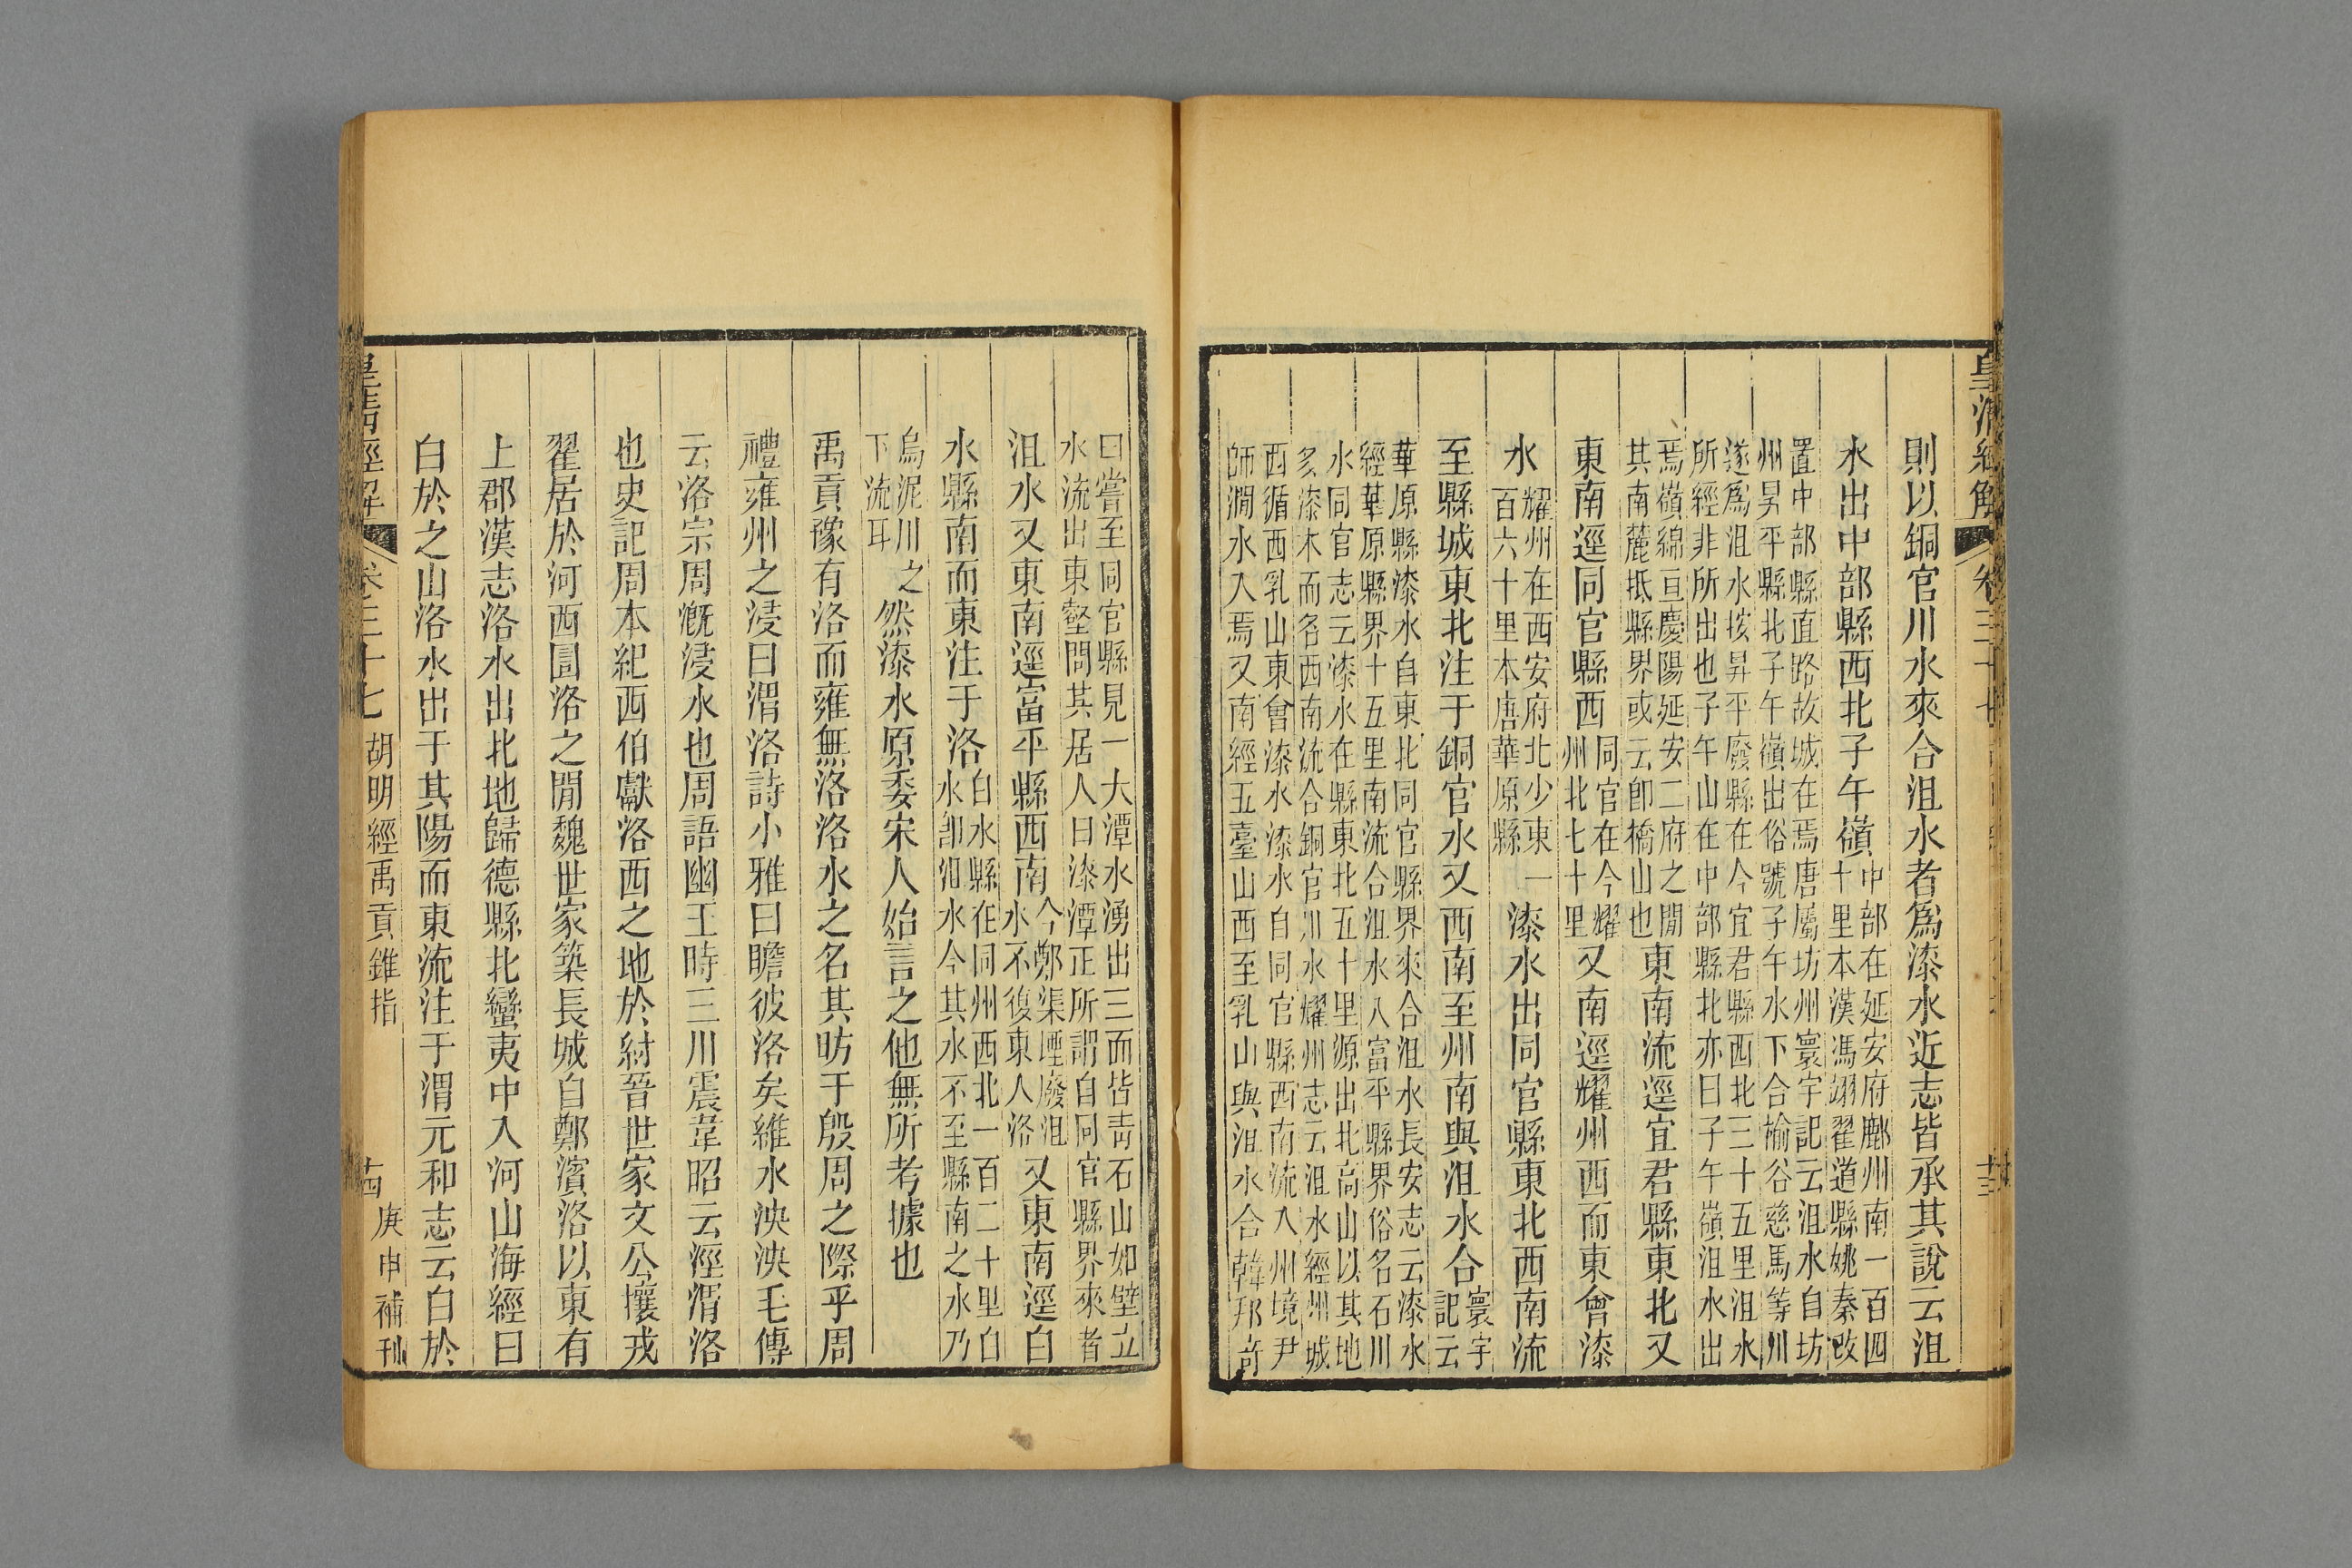 皇清經解
卷三十七
十三
則以銅官川水來合沮水者爲漆水近志皆承其說云沮
水出中部縣西北子午嶺
中部在延安府鄜州南一百四
十里本漢馮翊翟道縣姚秦改
置中部縣直路故城在焉唐屬坊州寰宇記云沮水自坊
州昇平縣北子午嶺出俗號子午水下合榆谷慈馬等川
遂爲沮水按昇平廢縣在今宜君縣西北三十五里沮水
所經非所出也子午山在中部縣北亦曰子午嶺沮水出
焉嶺綿亘慶陽延安二府之閒
其南麓抵縣界或云卽橋山也
東南流逕宜君縣東北又
東南逕同官縣西
同官在今耀
州北七十里
又南逕耀州西而東會漆
水
耀州在西安府北少東一
百六十里本唐華原縣
漆水出同官縣東北西南流
至縣城東北注于銅官水又西南至州南與沮水合
寰宇
記云
華原縣漆水自東北同官縣界來合沮水長安志云漆水
經華原縣界十五里南流合沮水入富平縣界俗名石川
水同官志云漆水在縣東北五十里源出北高山以其地
多漆木而名西南流合銅官川水耀州志云沮水經州城
西循西乳山東會漆水漆水自同官縣西南流入州境尹
師澗水入焉又南經五臺山西至乳山與沮水合韓邦奇
曰嘗至同官縣見一大潭水湧出三面皆靑石山如壁立
水流出東壑問其居人曰漆潭正所謂自同官縣界來者
沮水又東南逕富平縣西南
今鄭渠堙廢沮
水不復東入洛
又東南逕白
水縣南而東注于洛
白水縣在同州西北一百二十里白
水卽沮水今其水不至縣南之水乃
烏泥川之
下流耳
然漆水原委宋人始言之他無所考據也
禹貢豫有洛而雍無洛洛水之名其昉于殷周之際乎周
禮雍州之浸曰渭洛詩小雅曰瞻彼洛矣維水泱泱毛傳
云洛宗周漑浸水也周語幽王時三川震韋昭云涇渭洛
也史記周本紀西伯獻洛西之地於紂晉世家文公攘戎
翟居於河西圁洛之閒魏世家築長城自鄭濱洛以東有
上郡漢志洛水出北地歸德縣北蠻夷中入河山海經曰
白於之山洛水出于其陽而東流注于渭元和志云白於
皇淸經解
卷三十七
胡明經禹貢錐指
十四
庚申補刊